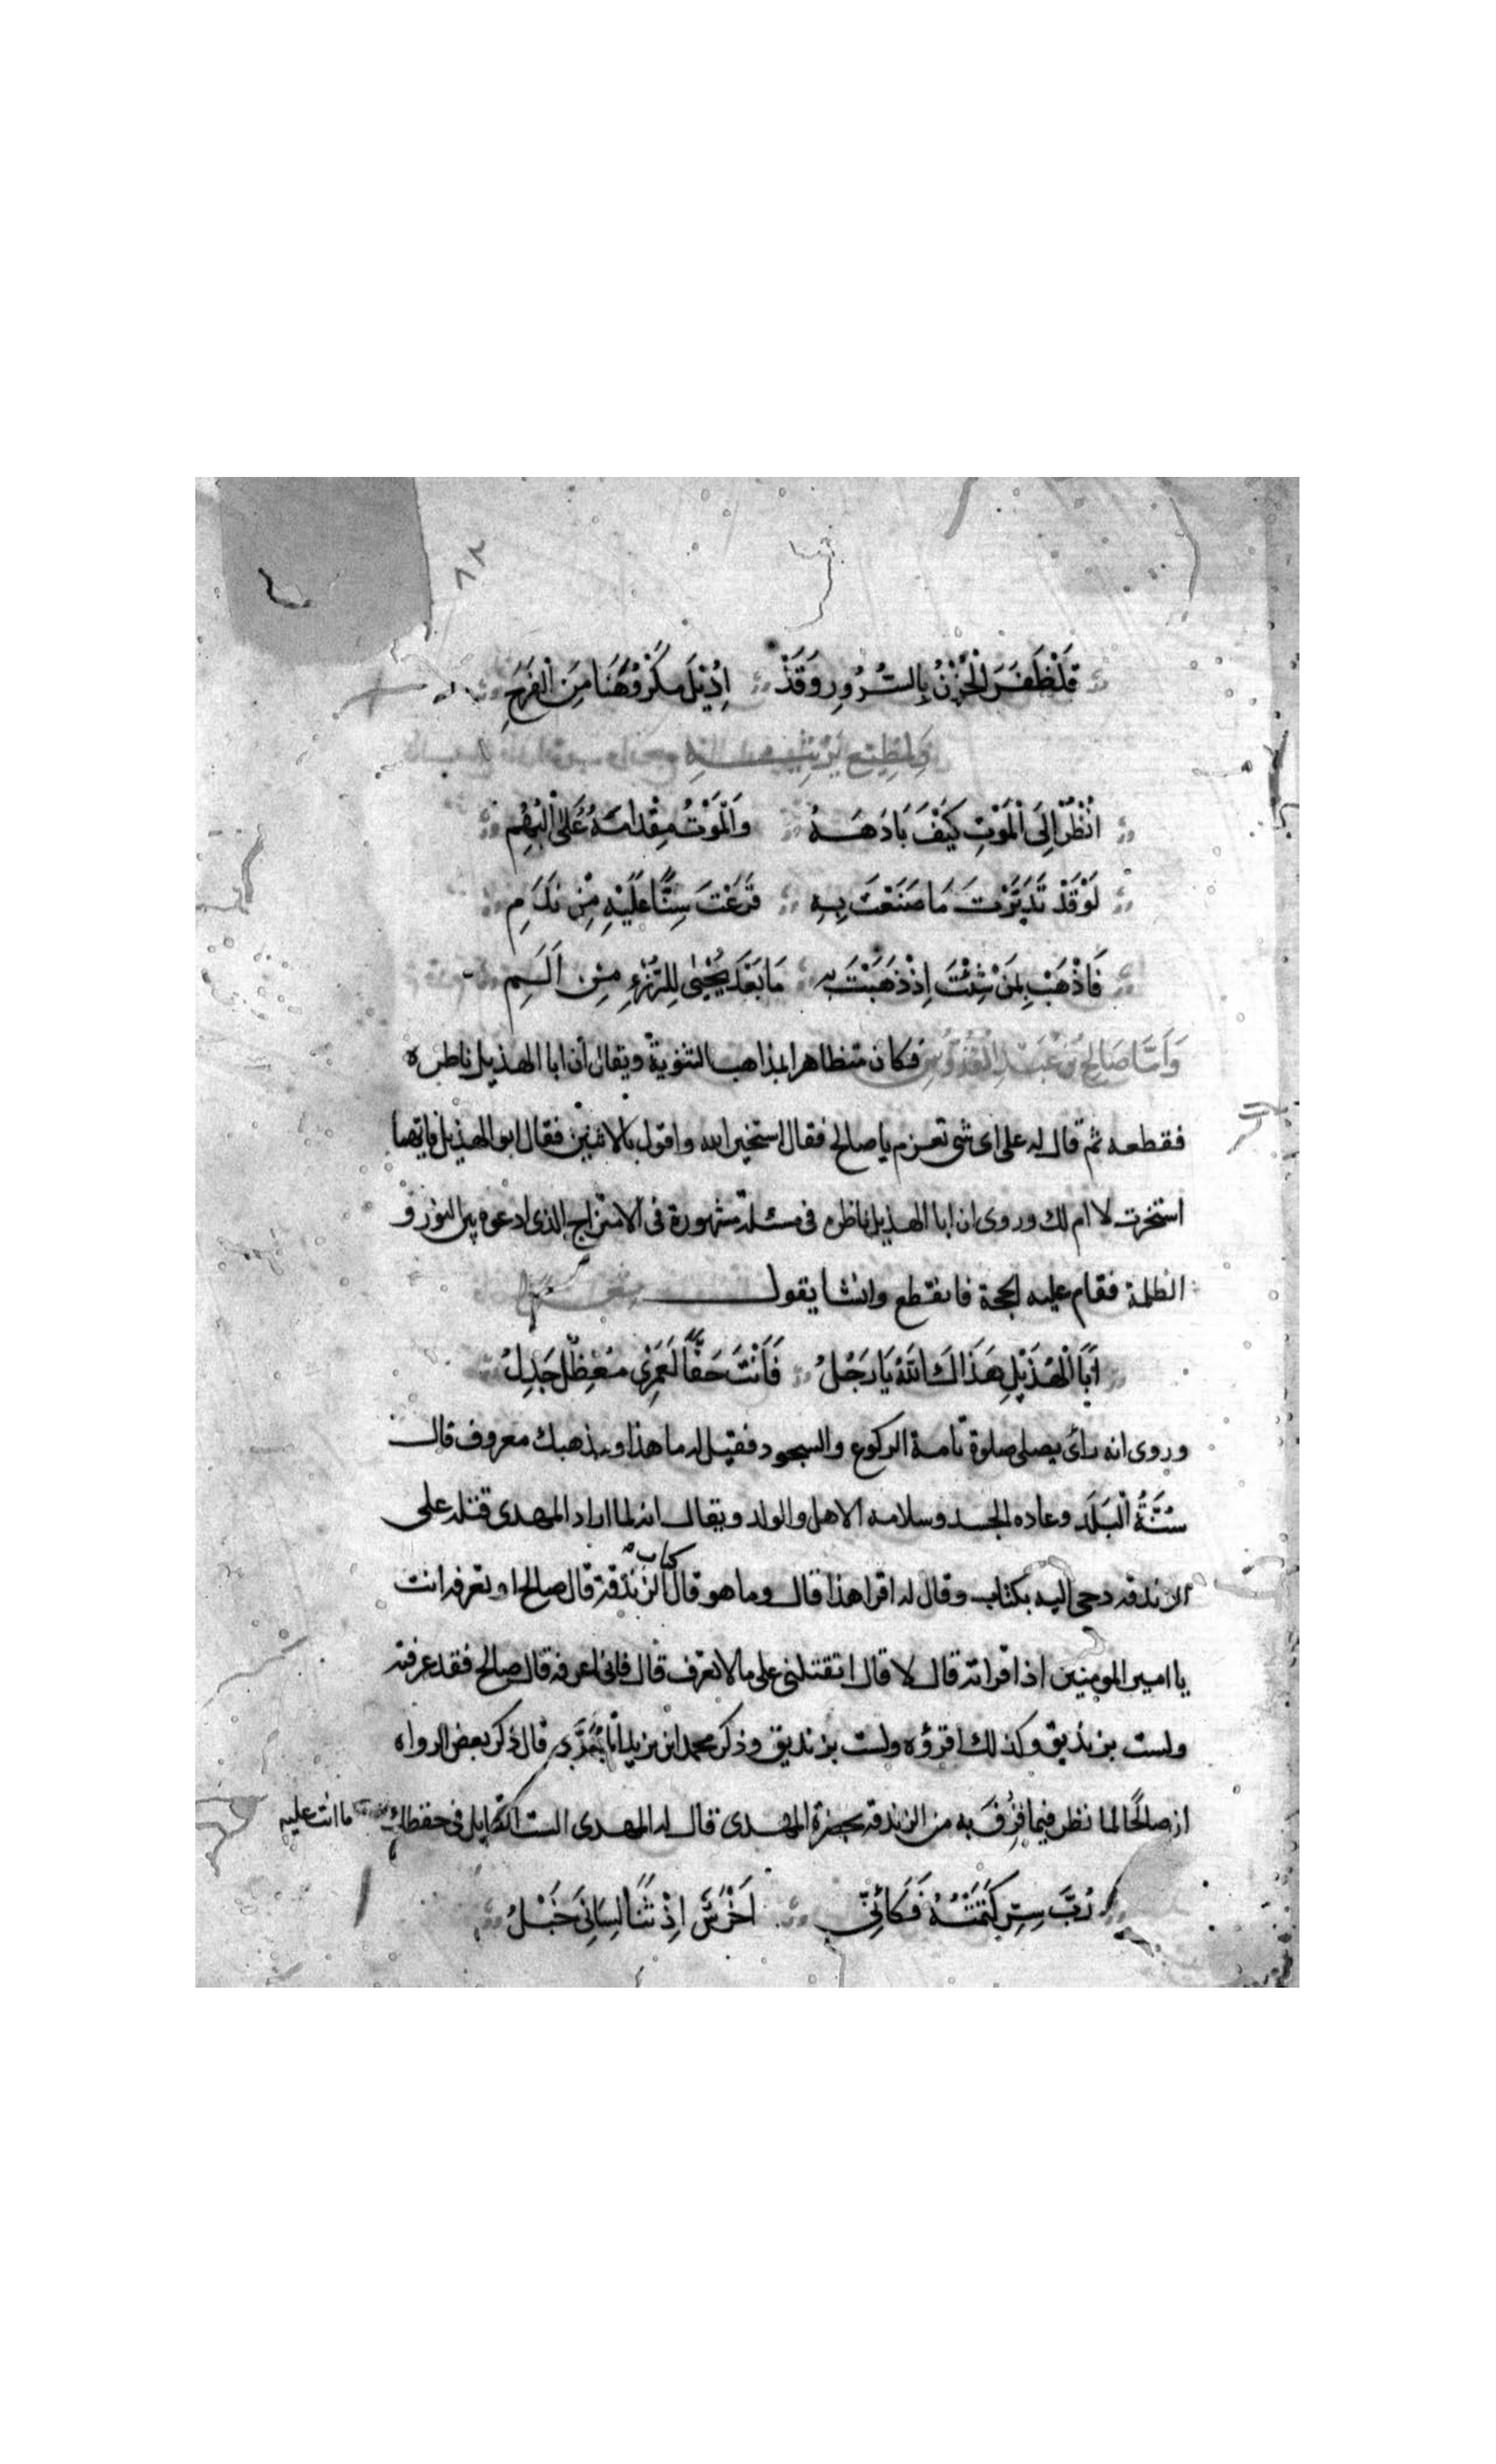 ٨٢
قَدْ ظَفَرَ الْحُزْنُ بِالسُّرُورِ وَقَدْ اِدُيْلَ مَكْرُوُهُنَا مِنَ الْفَرَحِ
وَلمُطِيْع يَرْثِيه
اُنْظُرْ اِلَى الْمَوْتِ كَيْفَ بَادَهَهُ وَالْمَوْتُ مِقْدامَةٌ عَلَى الْبُهَمِ
لَوْ قَدْ تَدَبَّرْتَ مَا صَنَعْتَ بِهِ قَرَعْتَ سِنًّا عَلَيْهِ مِنْ نَدَمِ
فَاذْهَبْ بِمَنْ شِئْتَ اِذْ ذَهَبْتَ بِهِ مَا بَعْدَ يَحْيٰى لِلرُّزْءِ مِنْ اَلَمِ
وَاَمَّا صَالحُ بْنُ عَبْدِ الْقُدُّوُسِ فكان متظاهرا بمذاهب الثنوية ويقال أن ابا الهذيل ناظره
فقطعه ثم قال له على اى شى تعزم يا صالح فقال استخير الله واقول بالاثنين فقال ابو الهذيل فايهما
استخرت لا ام لك وروى ان ابا الهذيل ناظره فى مسئلة مشهورة فى الامتزاج الذى ادعوه بين النور و
الظلمة فقام عليه الحجة فانقطع وانشا يقول
اَبَا الْهُذَيْلِ هَدَاكَ اللّٰهُ يَا رَجُلُ فَاَنْتَ حَقًّا لَعَمْرِى مُعْضِلٌ جَدِلُ
وروى انه رأى يصلى صلوة تامة الركوع والسجود فقيل له ما هذا ومذهبك معروف قال
سُنَّةُ الْبَلَدِ وعاده الجسد وسلامه الاهل والولد ويقال انه لما اراد المهدى قتله على
الزندقه دحى اليه بكتاب وقال له اقرا هذا قال وما هو قال كتاب الزندقة قال صالح او تعرفه انت
يا امير المومنين اذا قراته قال لا قال اتقتلنى على ما لا تعرف قال فانى اعرفه قال صالح فقد عرفته
ولست بزنديق وكذلك اقرؤه ولست بزنديق وذكر محمد ابن يزيد المُبَرَّد قال ذكر بعض الرواه
ان صالحًا لما نظر فيما قُرِفَ به من الزندقه بحضرة المهدى قال له المهدى الست القايل فى حفظك ما انت عليه
رُبَّ سِرٍّ كَتَمْتُهُ فَكَاَنِّى اَخْرَسٌ اَوْ ثَنَا لِسَانِى خَبْلُ